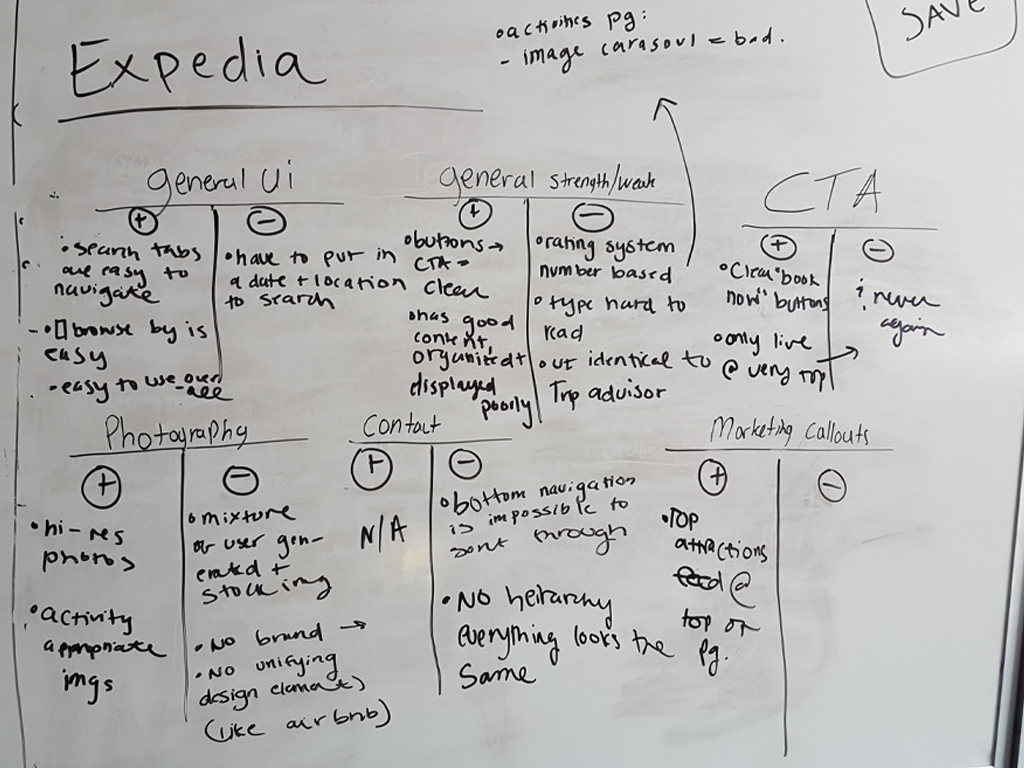 Expedia
• activities pg:
- image carasoul = bad.
SAVE
general Ui
+
-
• search tabs
are easy to
navigate
• browse by is
easy
• easy to use over
-all
• have to put in
a date + location
to search
general strength/weak
+
-
• buttons →
CTA =
clear
• has good
content,
organized +
displayed
poorly
• rating system
number based
• type hard to
read
• identical to
Trip advisor
CTA
+
-
• Clear "book
now" buttons
• only live
@ very top →
never
again
Photography
+
-
• hi-res
photos
• activity
appropriate
imgs
• mixture
of user gen-
erated +
stock img
• No brand →
• No unifying
design elements
(like airbnb)
Contact
+
-
N/A
• bottom navigation
is impossible to
sort through
• No heirarchy
everything looks the
same
Marketing Callouts
+
-
• TOP
attractions
@
top of
pg.